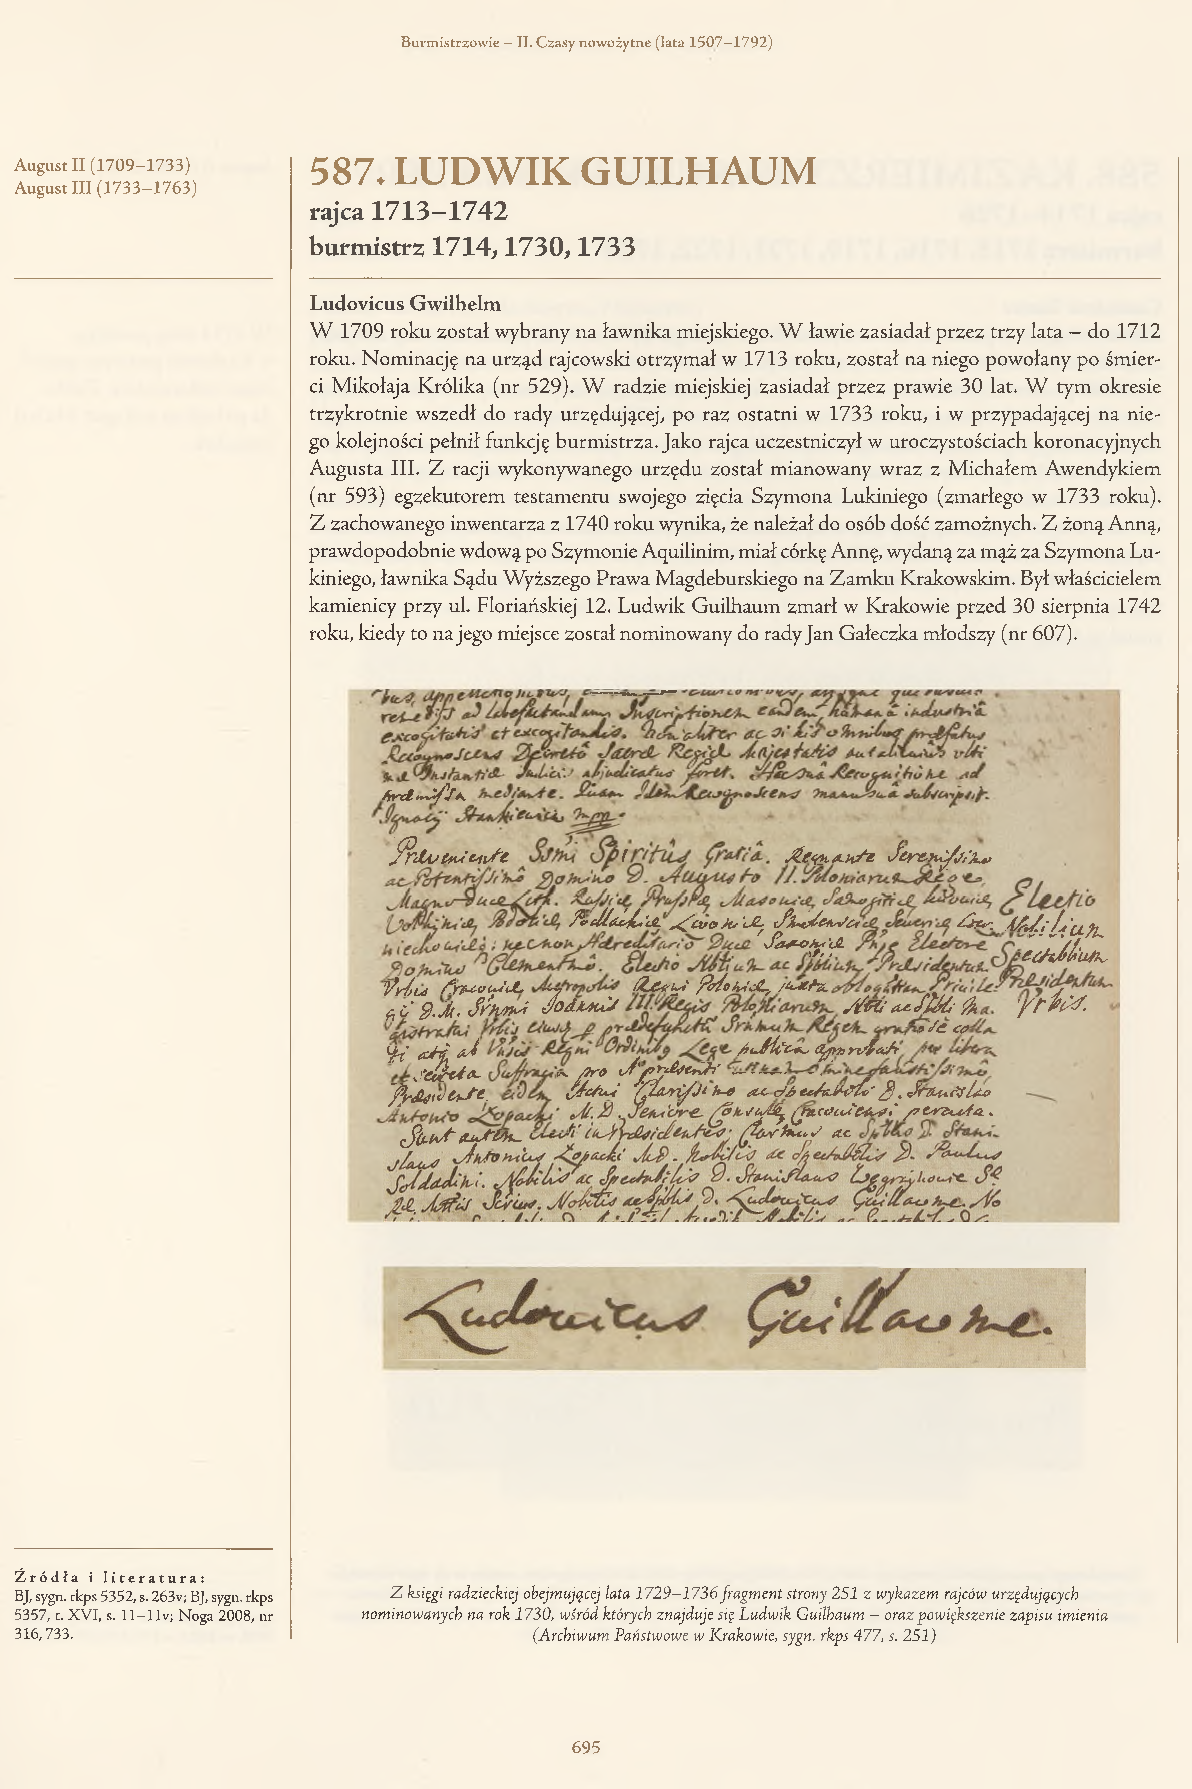 Burmistrzowie – II. Czasy nowożytne (lata 1507–1792)
August II (1709–1733)
August III (1733–1763)
587. LUDWIK GUILHAUM
rajca 1713–1742
burmistrz 1714, 1730, 1733
Ludovicus Gwilhelm
W 1709 roku został wybrany na ławnika miejskiego. W ławie zasiadał przez trzy lata – do 1712
roku. Nominację na urząd rajcowski otrzymał w 1713 roku, został na niego powołany po śmier-
ci Mikołaja Królika (nr 529). W radzie miejskiej zasiadał przez prawie 30 lat. W tym okresie
trzykrotnie wszedł do rady urzędującej, po raz ostatni w 1733 roku, i w przypadającej na nie-
go kolejności pełnił funkcję burmistrza. Jako rajca uczestniczył w uroczystościach koronacyjnych
Augusta III. Z racji wykonywanego urzędu został mianowany wraz z Michałem Awendykiem
(nr 593) egzekutorem testamentu swojego zięcia Szymona Lukiniego (zmarłego w 1733 roku).
Z zachowanego inwentarza z 1740 roku wynika, że należał do osób dość zamożnych. Z żoną Anną,
prawdopodobnie wdową po Szymonie Aquilinim, miał córkę Annę, wydaną za mąż za Szymona Lu-
kiniego, ławnika Sądu Wyższego Prawa Magdeburskiego na Zamku Krakowskim. Był właścicielem
kamienicy przy ul. Floriańskiej 12. Ludwik Guilhaum zmarł w Krakowie przed 30 sierpnia 1742
roku, kiedy to na jego miejsce został nominowany do rady Jan Gałeczka młodszy (nr 607).
Inscriptionem eandem humanâ industriâ
excogitatis et excogitandis. Non aliter ac si his omnibus præfatus
Recognoscens Decretô Sacræ Regiæ Majestatis
foret. Hac suâ Recognitione ad
præmissa mediante. Quam Idem Recognoscens manu suâ subscripsit.
Ignacÿ Stankiewicz mpp.
Præveniente Ssmi Spiritûs Gratiâ. Regnante Serenissimo
ac Potentissimô Domino D. Augusto II. Poloniarum Rege,
Magno Duce Lith. Russiæ, Prussiæ, Masoviæ, Samogitiæ, Kijoviæ,
Volhiniæ, Podoliæ, Podlachiæ, Livoniæ, Smolensciæ, Severiæ, Czer-
niechoviæq; necnon Hæreditario Duce Saxoniæ Pnpe Electore
Domino Clementmô. Electio Nbtium ac Spbtium Præsidentum
Vrbis Cracoviæ, Metropolis Regni Poloniæ, juxta
Joannis III. Regis Poloniarum
Præsidente, eidem Actui Clarissimo ac Spectabili D. Stanislao
Antonio Łopacki M.D. Seniore Consule Cracoviensi peracta.
Sunt autem Electi in Præsidentes: Clarmus ac Spblis D. Stani-
slaus Antonius Łopacki MD. Nobilis ac Spectabilis D. Paulus
Soldadini. Nobilis ac Spectabilis D. Stanislaus Węgrzynowic
Nobilis ac Spblis D. Ludovicus Guillaume. No
Electio
Nobilium
Spectabilium
Præsidentum
Vrbis.
Ludovicus Guillaume.
Źródła i literatura:
BJ, sygn. rkps 5352, s. 263v; BJ, sygn. rkps
5357, t. XVI, s. 11–11v; Noga 2008, nr
316, 733.
Z księgi radzieckiej obejmującej lata 1729–1736 fragment strony 251 z wykazem rajców urzędujących
nominowanych na rok 1730, wśród których znajduje się Ludwik Guilhaum – oraz powiększenie zapisu imienia
(Archiwum Państwowe w Krakowie, sygn. rkps 477, s. 251)
695